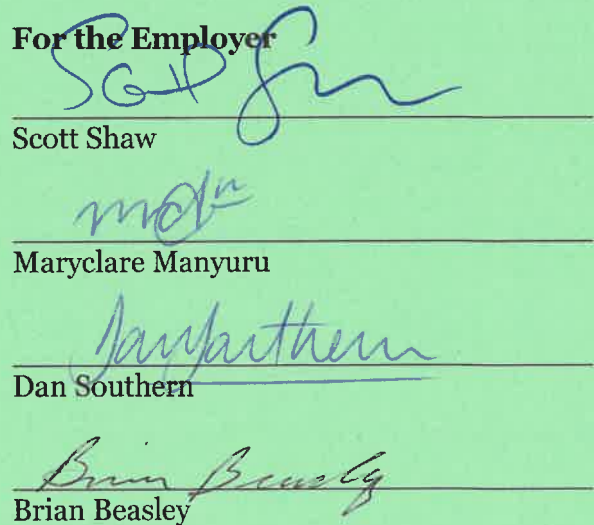 For the Employer
Scott Shaw
Maryclare Manyuru
Dan Southern
Brian Beasley
Brian Beasley